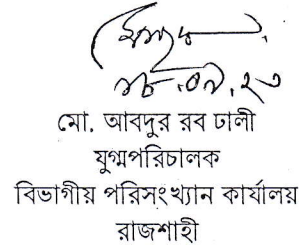 মো. আবদুর রব ঢালী
যুগ্মপরিচালক
বিভাগীয় পরিসংখ্যান কার্যালয়
রাজশাহী